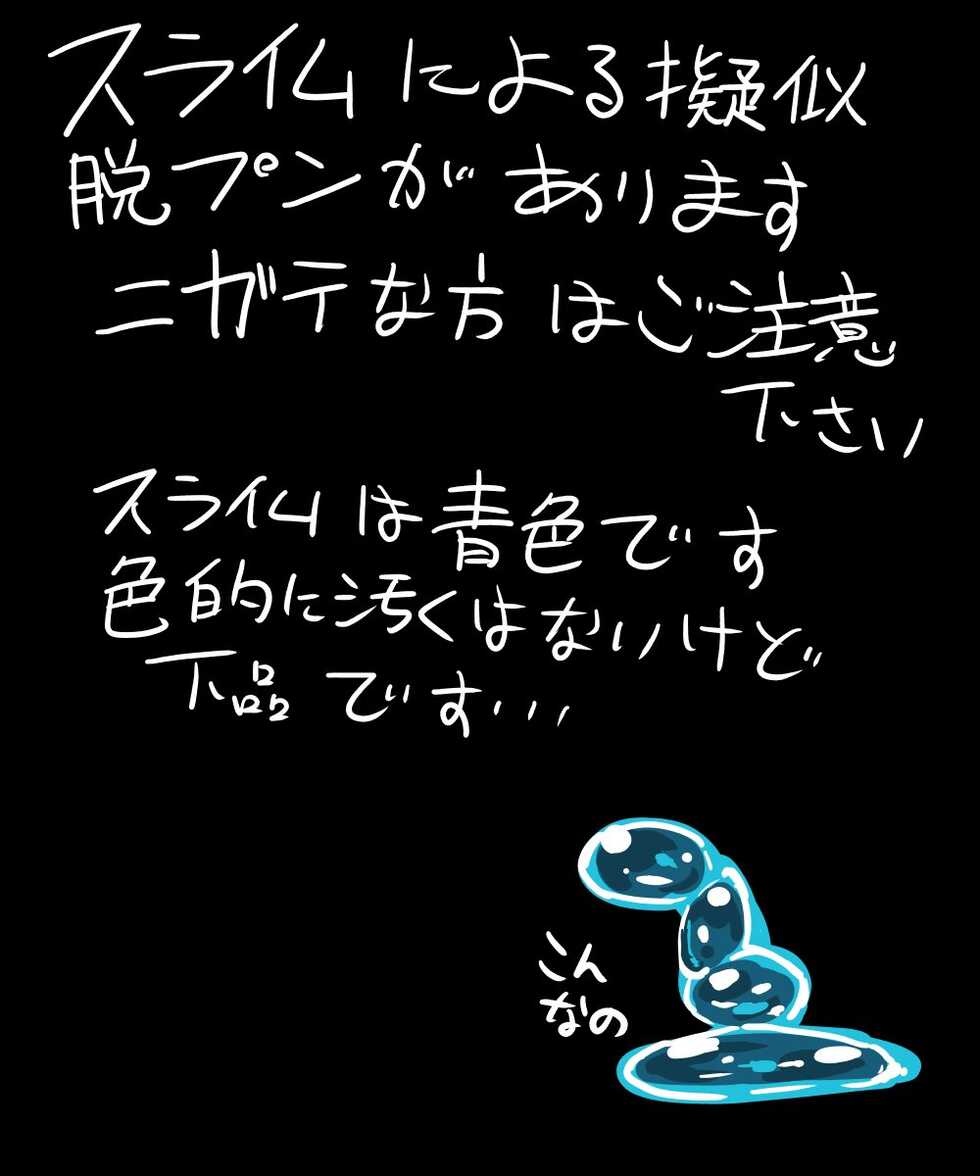 スライムによる擬似
脱プンがあります
ニガテな方はご注意
下さい
スライムは青色です
色的に汚くはないけど
下品です・・・
こん
なの